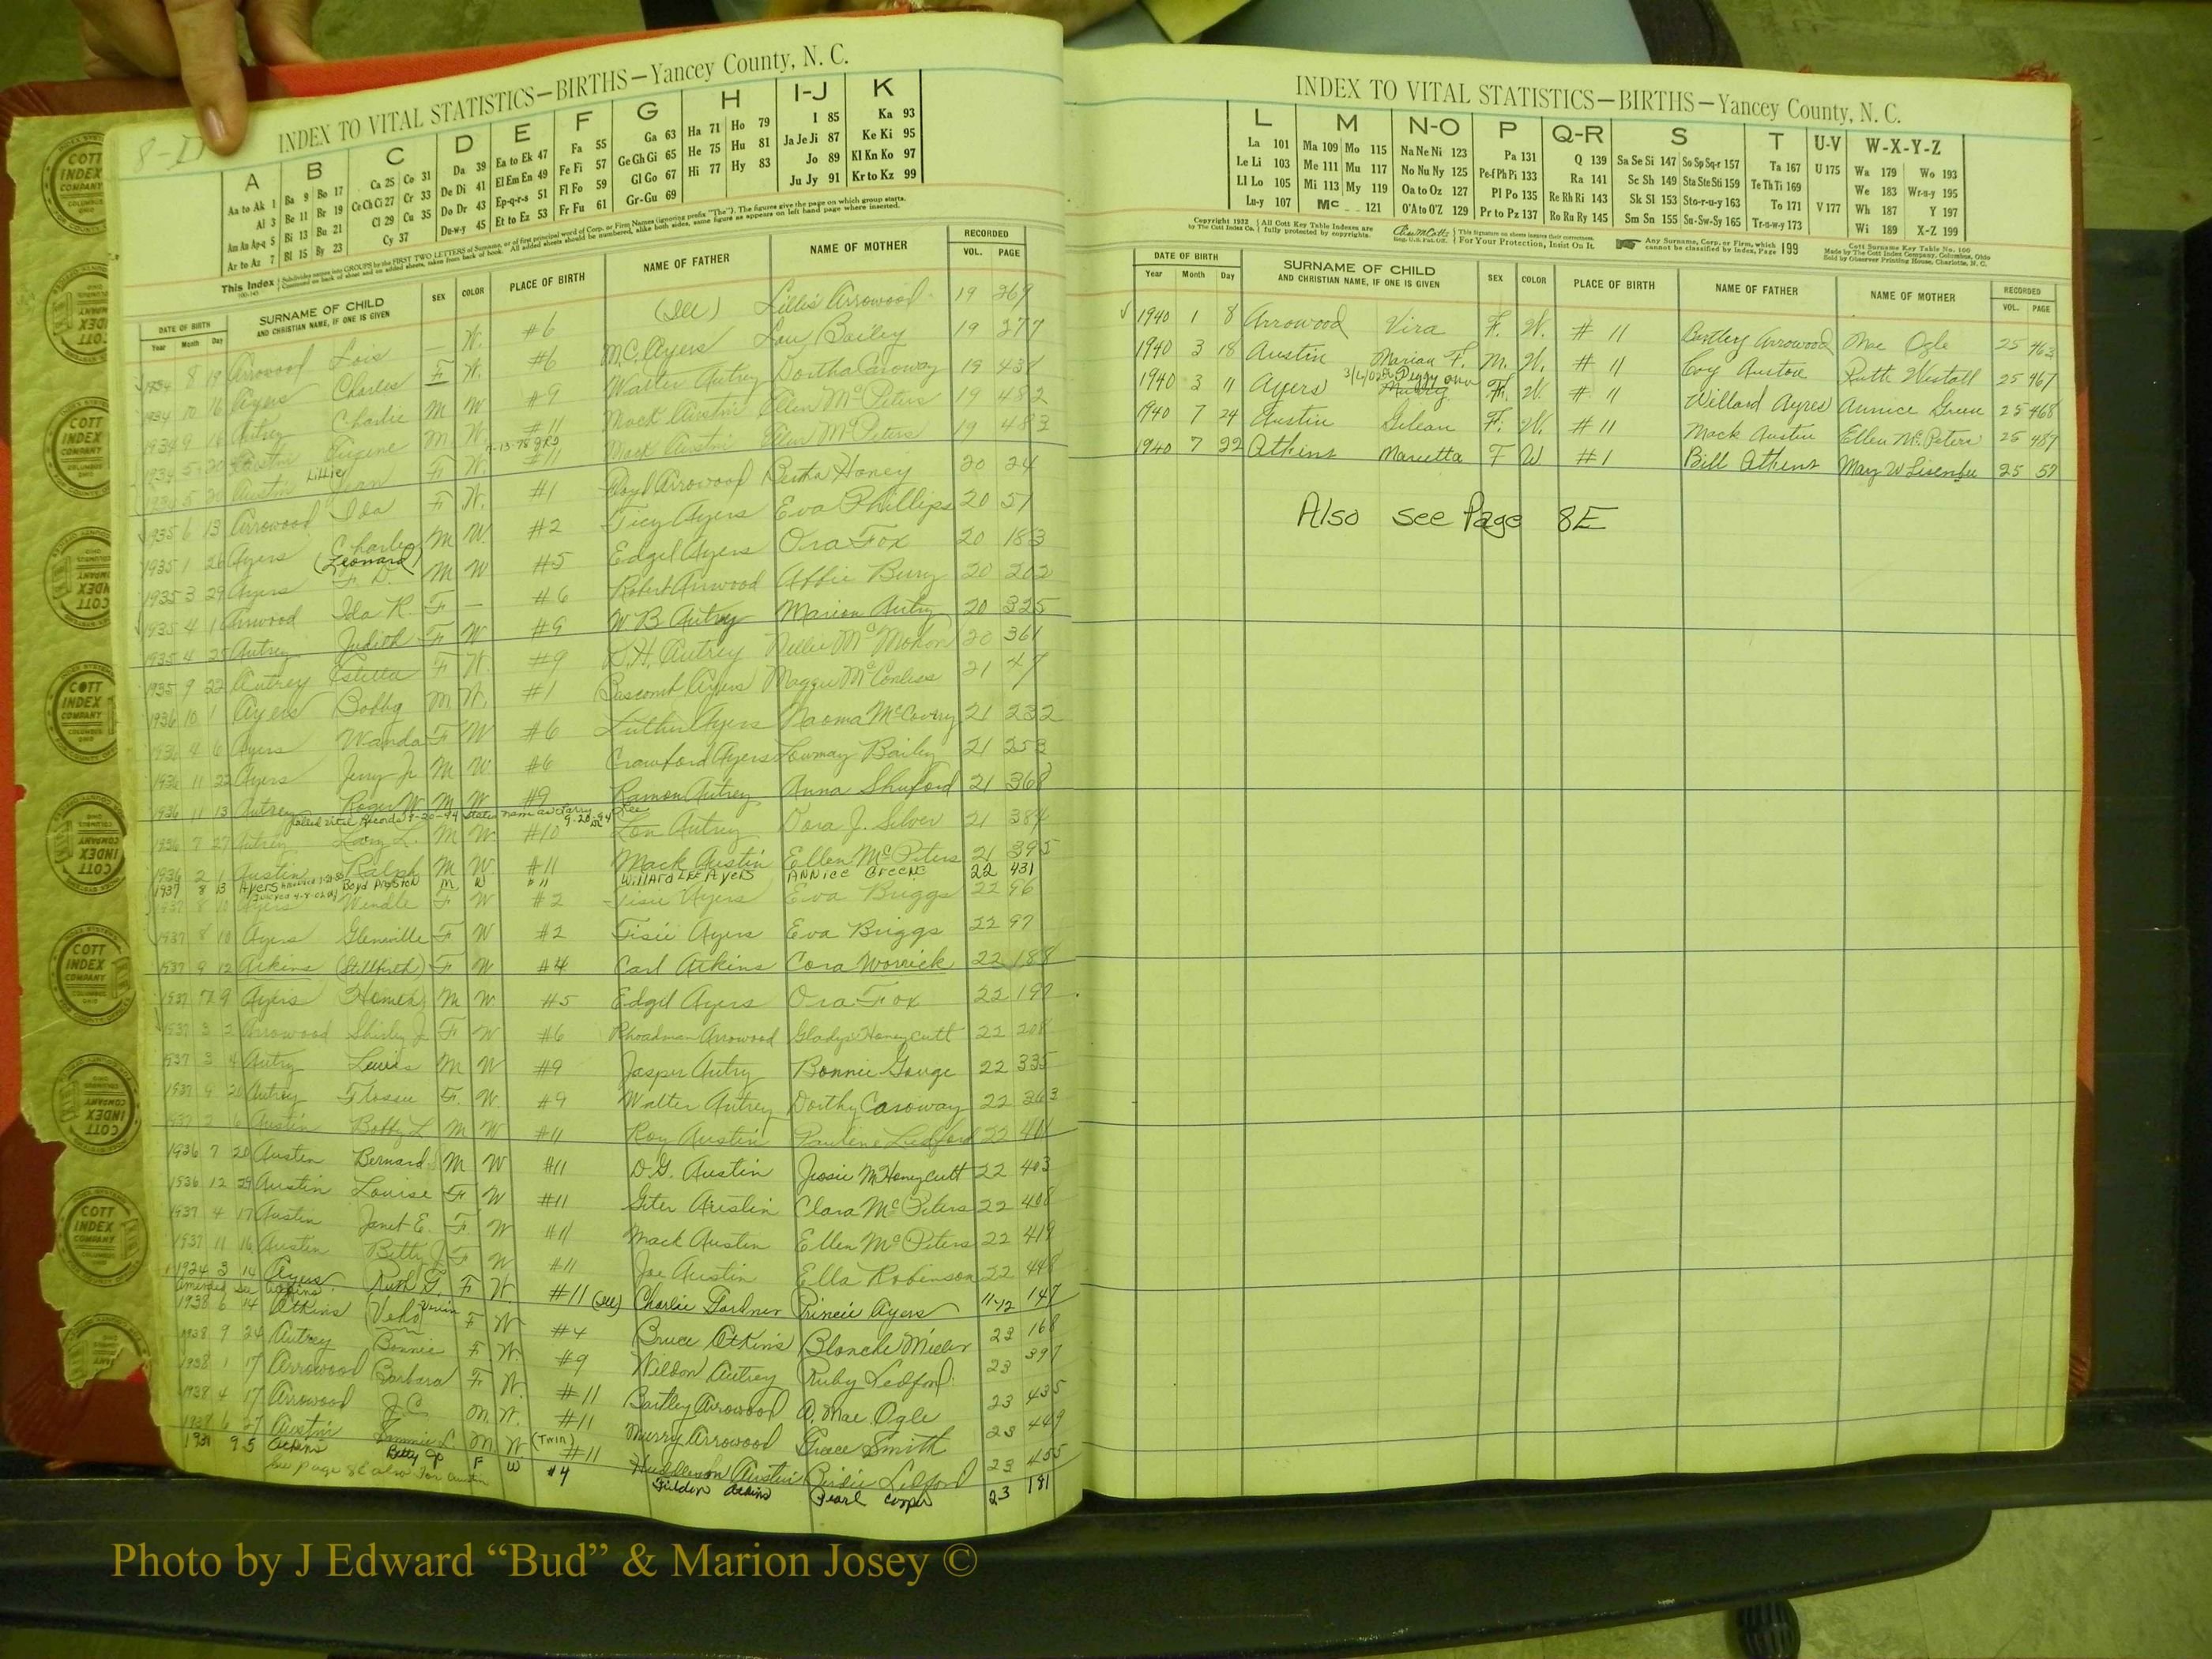 8-D
INDEX TO VITAL STATISTICS—BIRTHS—Yancey County, N. C.
A B C D E F G H I-J K
Aa to Ak 1 Ba 9 Bo 17 Ca 25 Co 31 Da 39 Ea to Ek 47 Fa 55 Ga 63 Ha 71 Ho 79 I 85 Ka 93
Al 3 Be 11 Br 19 Ce Ch Ci 27 Cr 33 De Di 41 El Em En 49 Fe Fi 57 Ge Gh Gi 65 He 75 Hu 81 Ja Je Ji 87 Ke Ki 95
Am An Ap-q 5 Bi 13 Bu 21 Cl 29 Cu 35 Do Dr 43 Ep-q-r-s 51 Fl Fo 59 Gl Go 67 Hi 77 Hy 83 Jo 89 Kl Kn Ko 97
Ar to Az 7 Bl 15 By 23 Cy 37 Du-w-y 45 Et to Ez 53 Fr Fu 61 Gr-Gu 69 Ju Jy 91 Kr to Kz 99
This Index
DATE OF BIRTH SURNAME OF CHILD SEX COLOR PLACE OF BIRTH NAME OF FATHER NAME OF MOTHER RECORDED
Year Month Day AND CHRISTIAN NAME, IF ONE IS GIVEN VOL. PAGE
1934 8 19 Arrowood Lois — W. #6 (Ill) Lillie Arrowood 19 269
1934 10 16 Ayers Charles F W. #6 M.C. Ayers Lou Bailey 19 277
1934 9 Autrey Charlie M W #9 Walter Autrey Dortha Caroway 19 438
1934 5 20 Austin Eugene M. W. #11 Mack Austin Ellen McPeters 19 482
1934 5 20 Austin Lillie Jean F W. #11 Mack Austin Ellen McPeters 19 483
1935 6 13 Arrowood Ida F W. #1 Floyd Arrowood Bertha Honey 20 24
1935 1 26 Ayers Charles (Leonard) M W. #2 Ticy Ayers Eva Phillips 20 51
1935 3 29 Ayers F. D. M W #5 Edgel Ayers Ora Fox 20 183
1935 4 1 Arrwood Ida R. F — #6 Robert Arrwood Affie Burg 20 202
1935 4 25 Autrey Judith F W #9 W B Autrey Marion Autry 20 325
1935 9 22 Autrey Estella F W. #9 S.H. Autrey Nellie McMohon 20 361
1936 10 1 Ayers Bobby M W. #1 Bascomb Ayers Maggie 21 47
1936 4 6 Ayers Wanda F W #6 Luther Ayers Naoma McCovrey 21 232
1936 11 22 Ayers Jerry Jr M W. #6 Crawford Ayers Loumay Bailey 21 253
1936 11 13 Autrey Roger W. M W #9 Ramon Autrey Anna Shuford 21 368
1936 7 27 Autrey Larry L. M W. #10 Lon Autrey Dora J. Silver 21 384
1936 2 1 Austin Ralph M W. #11 Mack Austin Ellen McPeters 21 395
1937 8 13 Ayers Boyd Preston M W #11 Willard Lee Ayers Annice Greene 22 431
8 10 Ayers Wendle F W #2 Tisie Ayers Eva Briggs 22 96
1937 8 10 Ayers Glenville F W #2 Tisie Ayers Eva Briggs 22 97
1937 9 12 Atkins (Stillbirth) F W #4 Carl Atkins Cora Worrick 22 188
1937 9 Ayers Homer M W. #5 Edgel Ayers Ora Fox 22 197
1937 3 2 Arrowood Shirley J F W #6 Rhoadman Arrowood Gladys Honeycutt 22 208
1937 3 4 Autry Lewis M W #9 Jasper Autry Bonnie Gouge 22 335
1937 9 20 Autrey Flossie F. W. #9 Walter Autrey Dorthy Caroway 22 363
1937 2 6 Austin Bobby L M W #11 Roy Austin Paulene Ledford 22 401
1936 7 20 Austin Bernard M W #11 D.G. Austin Jossie M Honeycutt 22 403
1936 12 29 Austin Louise F W #11 Geter Austin Clara McPeters 22 408
1937 4 17 Austin Janet E. F. W #11 Mack Austin Ellen McPeters 22 419
1937 11 16 Austin Betty J F W #11 Joe Austin Ella Robinson 22 448
1924 3 14 Ayers Ruth G. F W. #11 (Ill) Charlie Gardner Princie Ayers 11-12 147
Amended see
1938 6 14 Atkins (Veko) F W #4 Bruce Atkins Blanche Miller 23 168
1938 9 24 Autrey Bonnie F W. #9 Weldon Autrey Ruby Ledford 23 397
1938 1 17 Arrowood Barbara F W. #11 Bartley Arrowood A. Mae Ogle 23 435
1938 4 17 Arrowood J. C. M. W. #11 Murry Arrowood Grace Smith 23 449
1938 6 27 Austin L. M. W. (Twin) #11 Austin Birdie Ledford 23 455
9 5 Atkins Betty F W #4 Atkins Pearl 23 181
See page 8E also for Austin
INDEX TO VITAL STATISTICS—BIRTHS—Yancey County, N. C.
L M N-O P Q-R S T U-V W-X-Y-Z
La 101 Ma 109 Mo 115 Na Ne Ni 123 Pa 131 Q 139 Sa Se Si 147 So Sp Sq-r 157 Ta 167 U 175 Wa 179 Wo 193
Le Li 103 Me 111 Mu 117 No Nu Ny 125 Pe-f Ph Pi 133 Ra 141 Sc Sh 149 Sta Ste Sti 159 Te Th Ti 169 We 183 Wr-u-y 195
Ll Lo 105 Mi 113 My 119 Oa to Oz 127 Pl Po 135 Re Rh Ri 143 Sk Sl 153 Sto-r-u-y 163 To 171 V 177 Wh 187 Y 197
Lu-y 107 Mc 121 O'A to O'Z 129 Pr to Pz 137 Ro Ru Ry 145 Sm Sn 155 Su-Sw-Sy 165 Tr-u-w-y 173 Wi 189 X-Z 199
Copyright 1932 by The Cott Index Co. All Cott Key Table Indexes are fully protected by copyrights. This signature on sheets insures their correctness. For Your Protection, Insist On It. Any Surname, Corp. or Firm, which cannot be classified by Index, Page 199 Cott Surname Key Table No. 100 Made by The Cott Index Company, Columbus, Ohio Sold by Observer Printing House, Charlotte, N. C.
DATE OF BIRTH SURNAME OF CHILD SEX COLOR PLACE OF BIRTH NAME OF FATHER NAME OF MOTHER RECORDED
Year Month Day AND CHRISTIAN NAME, IF ONE IS GIVEN VOL. PAGE
1940 1 8 Arrowood Vira F. W. # 11 Bartley Arrowood Mae Ogle 25 463
1940 3 18 Austin Marian F. M. W. # 11 Coy Austin Ruth Westall 25 467
1940 3 11 Ayers Peggy Ann F. W. # 11 Willard Ayres Annice Green 25 468
1940 7 24 Austin Gilean F. W. # 11 Mack Austin Ellen McPeters 25 489
1940 7 22 Atkins Marietta F W #1 Bill Atkins Mary W Lisenbee 25 57
Also see Page 8E
COTT INDEX COMPANY COLUMBUS OHIO
Photo by J Edward “Bud” & Marion Josey ©